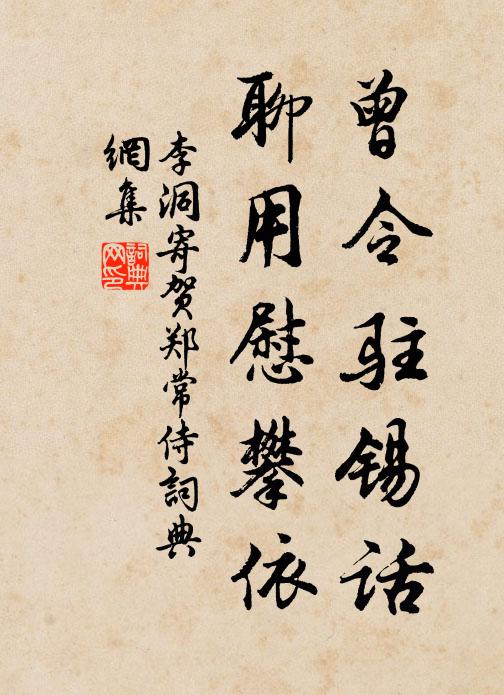 曾令驻锡话
聊用慰攀依
李洞寄贺郑常侍詞典
網集
詞典
网印